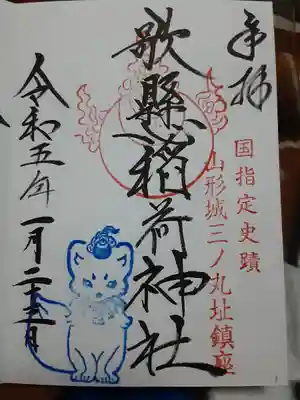 奉拝
国指定史蹟
山形城三ノ丸址鎮座
歌懸稲荷神社
令和五年一月二十三日